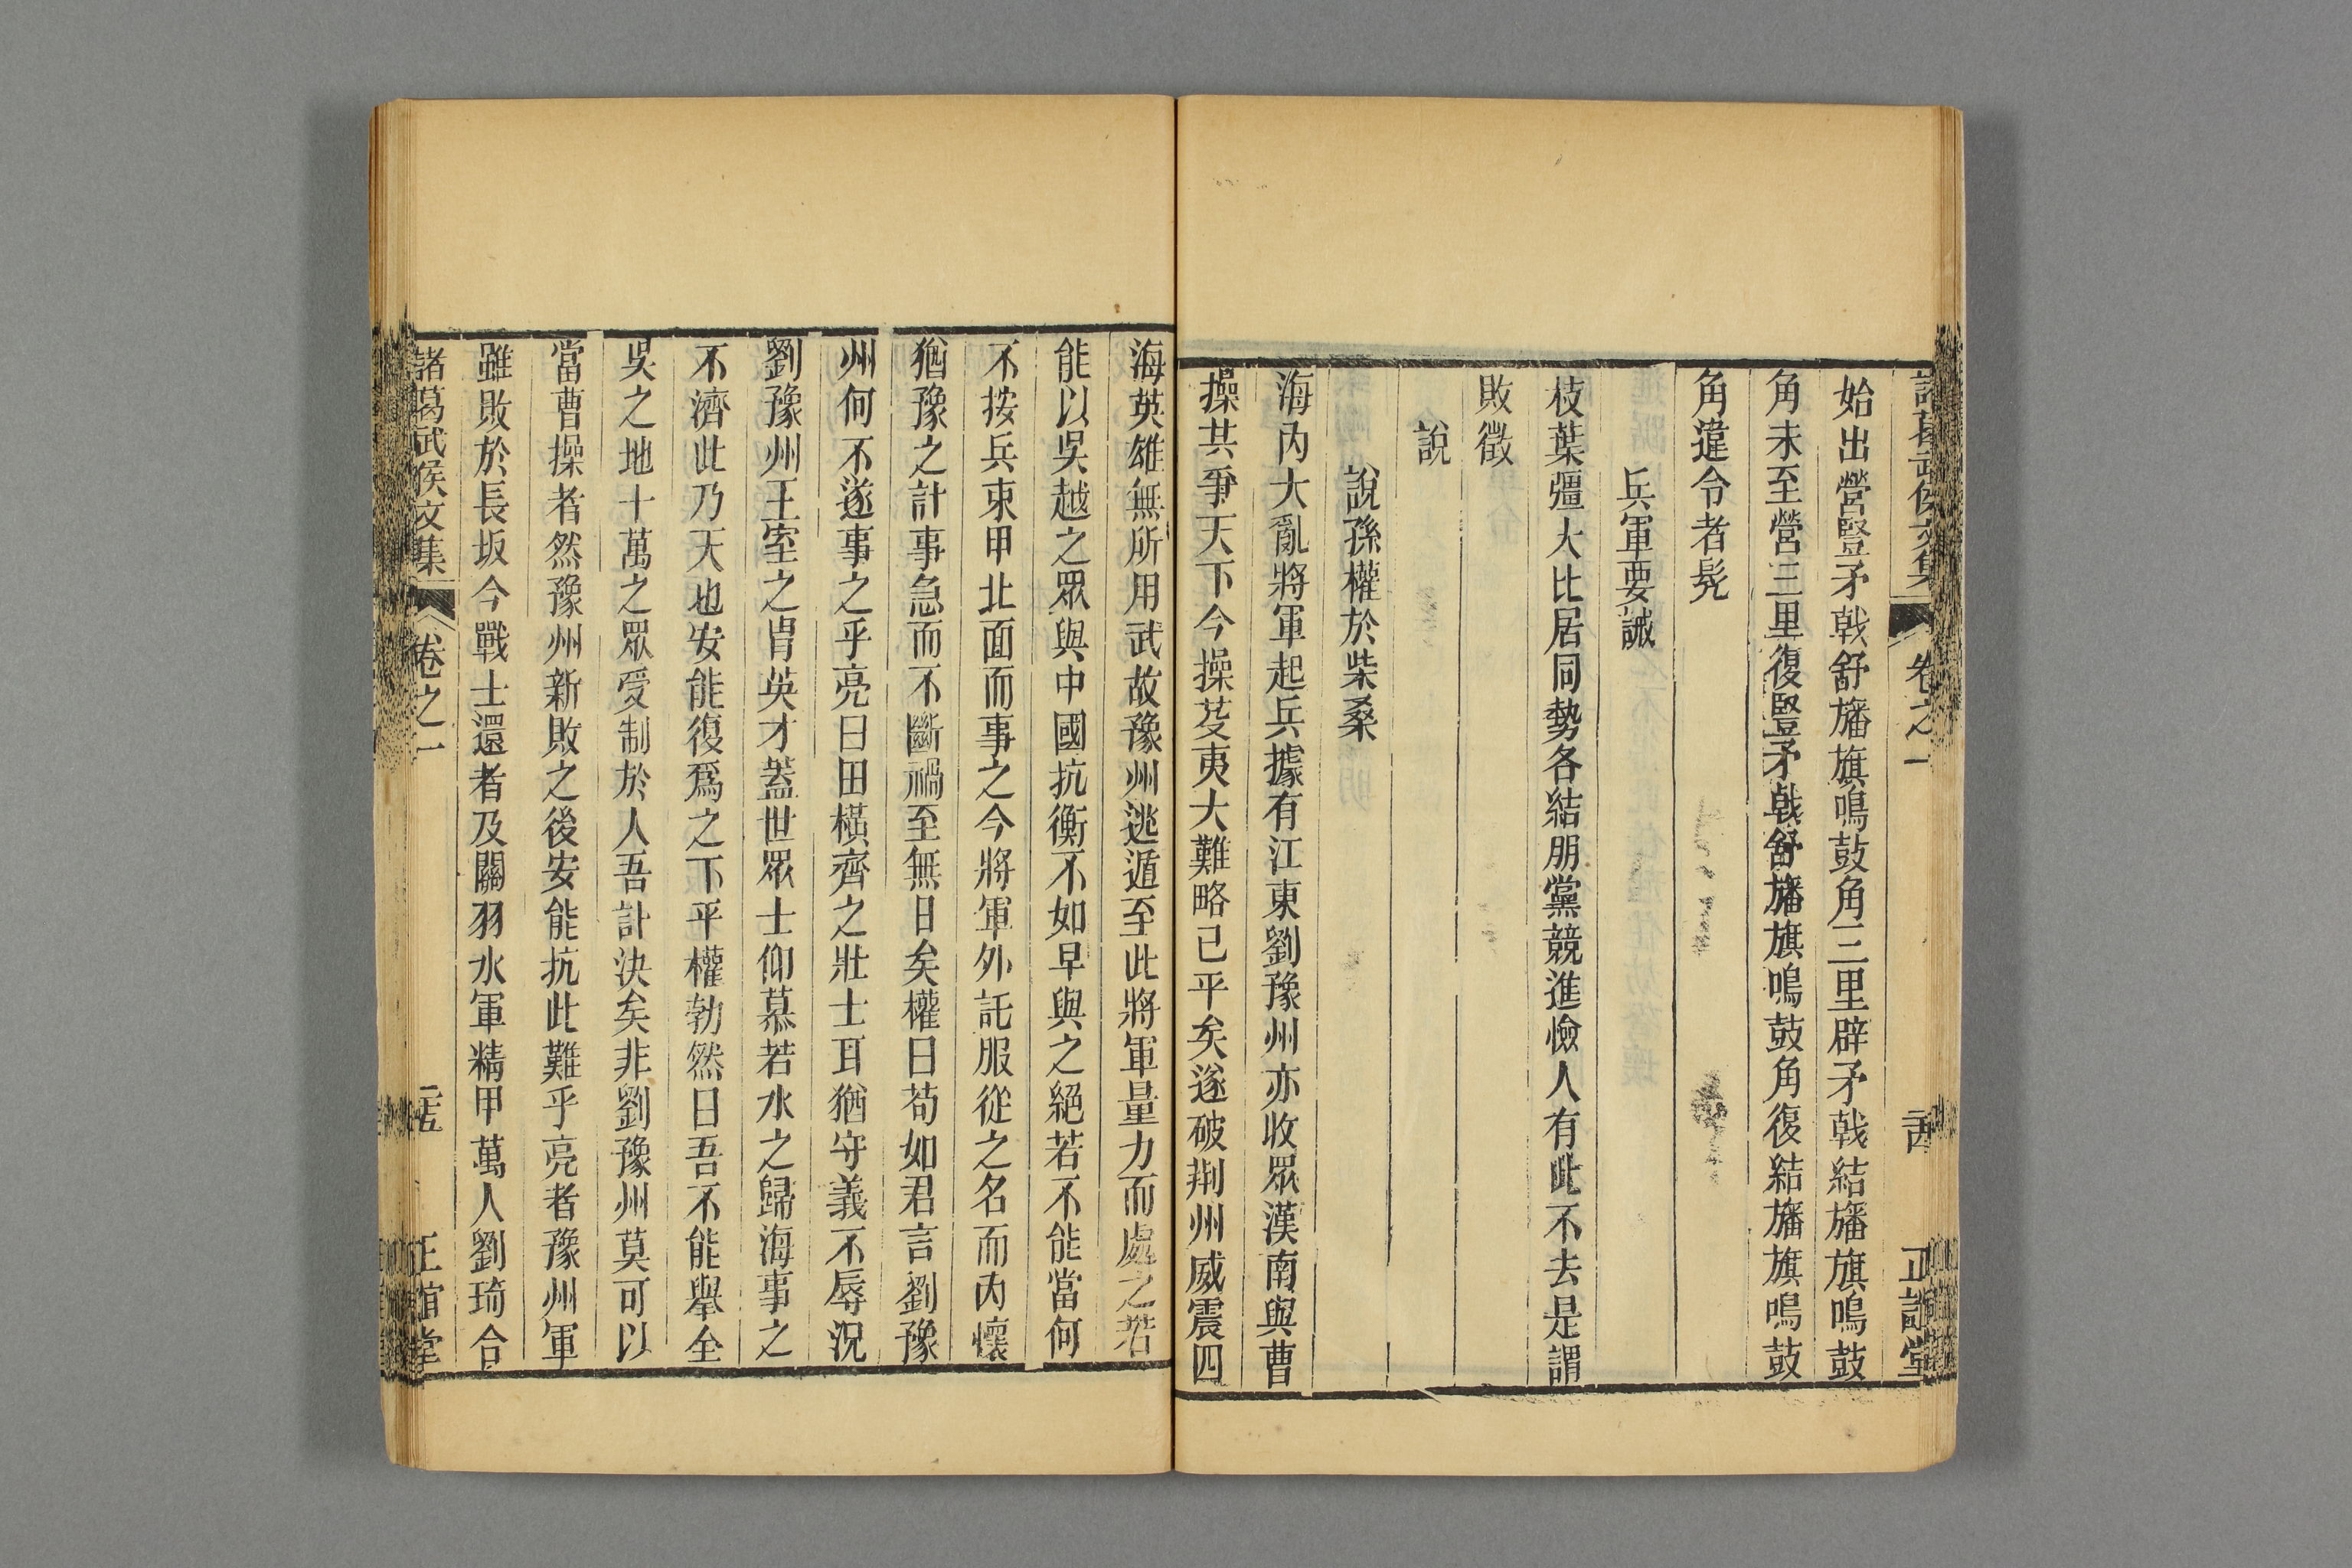 諸葛武侯文集 卷之一 二十四 正誼堂
始出營豎矛戟舒旛旗鳴鼓角三里辟矛戟結旛旗鳴鼓
角未至營三里復豎矛戟舒旛旗鳴鼓角復結旛旗鳴鼓
角違令者髡
兵軍要誡
枝葉彊大比居同勢各結朋黨競進憸人有此不去是謂
敗徵
說
說孫權於柴桑
海內大亂將軍起兵據有江東劉豫州亦收眾漢南與曹
操共爭天下今操芟夷大難略已平矣遂破荆州威震四
海英雄無所用武故豫州逃遁至此將軍量力而處之若
能以吳越之眾與中國抗衡不如早與之絕若不能當何
不按兵束甲北面而事之今將軍外託服從之名而內懷
猶豫之計事急而不斷禍至無日矣權曰苟如君言劉豫
州何不遂事之乎亮曰田橫齊之壯士耳猶守義不辱況
劉豫州王室之胄英才蓋世眾士仰慕若水之歸海事之
不濟此乃天也安能復爲之下乎權勃然曰吾不能舉全
吳之地十萬之眾受制於人吾計決矣非劉豫州莫可以
當曹操者然豫州新敗之後安能抗此難乎亮者豫州軍
雖敗於長坂今戰士還者及關羽水軍精甲萬人劉琦合
諸葛武侯文集 卷之一 二十五 正誼堂